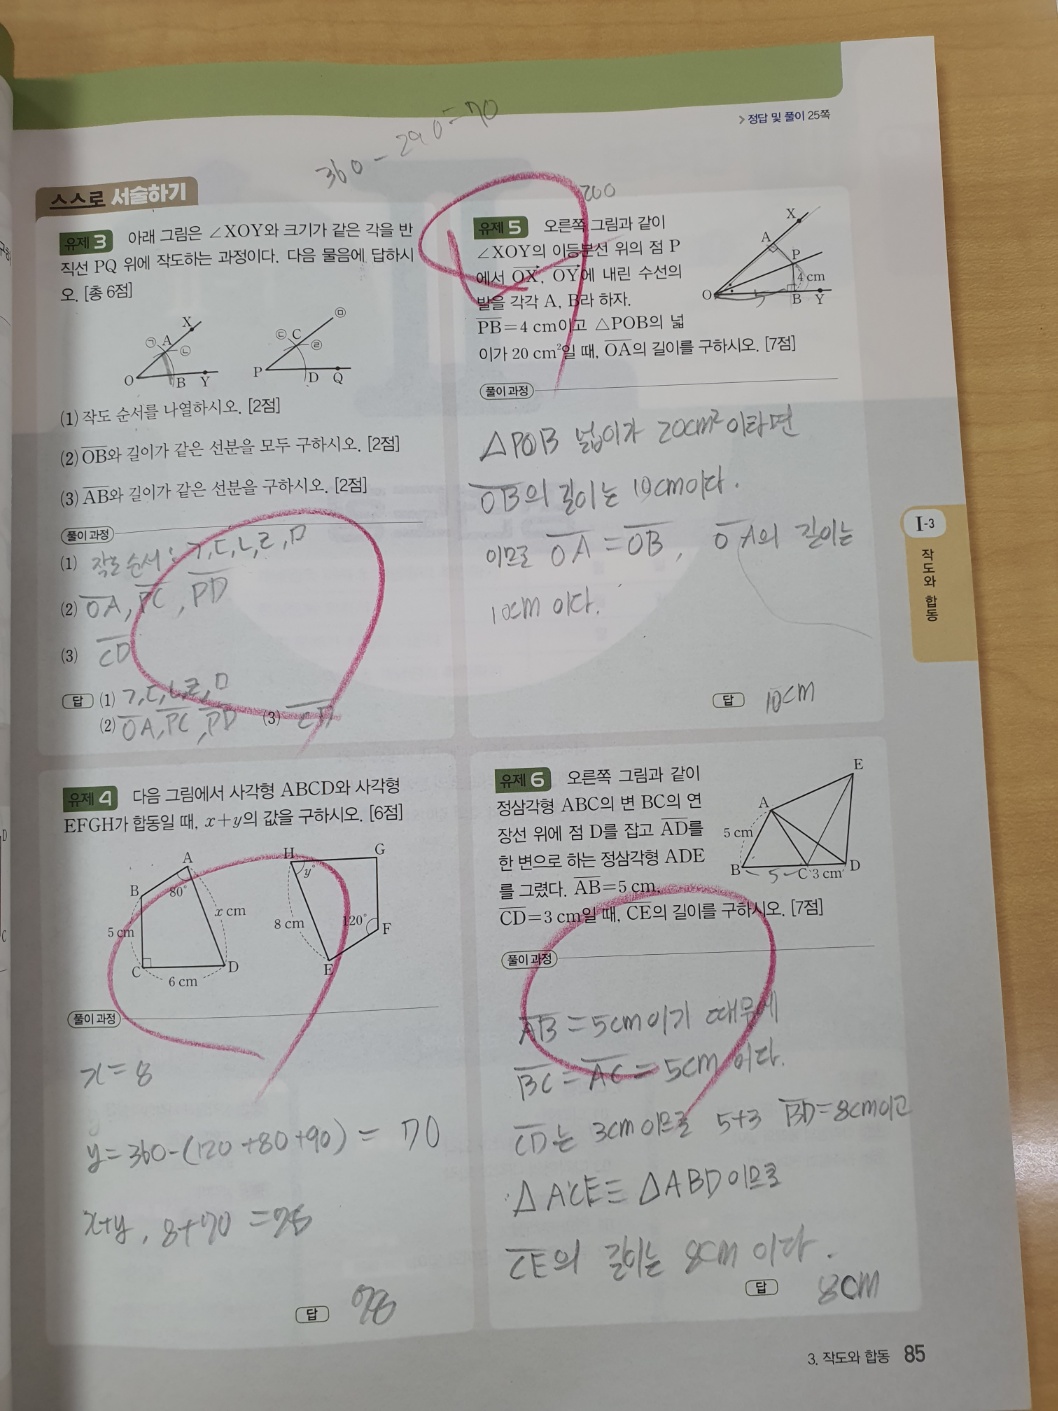 > 정답 및 풀이 25쪽
360 - 290 = 70
스스로 서술하기
유제 3 아래 그림은 ∠XOY와 크기가 같은 각을 반
직선 PQ 위에 작도하는 과정이다. 다음 물음에 답하시
오. [총 6점]
X
㉠ A
㉡
O
B
Y
㉤
㉢ C
㉣
P
D
Q
(1) 작도 순서를 나열하시오. [2점]
(2) OB와 길이가 같은 선분을 모두 구하시오. [2점]
(3) AB와 길이가 같은 선분을 구하시오. [2점]
풀이 과정
(1) 작도 순서 : ㄱ, ㄷ, ㄴ, ㄹ, ㅁ
(2) OA, PC, PD
(3) CD
답 (1) ㄱ, ㄷ, ㄴ, ㄹ, ㅁ
(2) OA, PC, PD (3) CD
유제 4 다음 그림에서 사각형 ABCD와 사각형
EFGH가 합동일 때, x+y의 값을 구하시오. [6점]
A
B
80°
x cm
5 cm
C
D
6 cm
H
G
y°
8 cm
120°
F
E
풀이 과정
x = 8
y = 360-(120+80+90) = 70
x+y, 8+70 = 78
답 78
200
유제 5 오른쪽 그림과 같이
∠XOY의 이등분선 위의 점 P
에서 OX, OY에 내린 수선의
발을 각각 A, B라 하자.
PB=4 cm이고 △POB의 넓
이가 20 cm²일 때, OA의 길이를 구하시오. [7점]
X
A
P
4 cm
O
B
Y
풀이 과정
△POB 넓이가 20cm² 이라면
OB의 길이는 10cm이다.
이므로 OA = OB, OA의 길이는
10cm 이다.
답 10cm
유제 6 오른쪽 그림과 같이
정삼각형 ABC의 변 BC의 연
장선 위에 점 D를 잡고 AD를
한 변으로 하는 정삼각형 ADE
를 그렸다. AB=5 cm,
CD=3 cm일 때, CE의 길이를 구하시오. [7점]
E
A
5 cm
B
5
C
3 cm
D
풀이 과정
AB = 5cm 이기 때문에
BC = AC = 5cm 이다.
CD는 3cm이므로 5+3 BD=8cm이고
△ACE≡△ABD이므로
CE의 길이는 8cm 이다.
답 8cm
I-3
작도와 합동
3. 작도와 합동 85